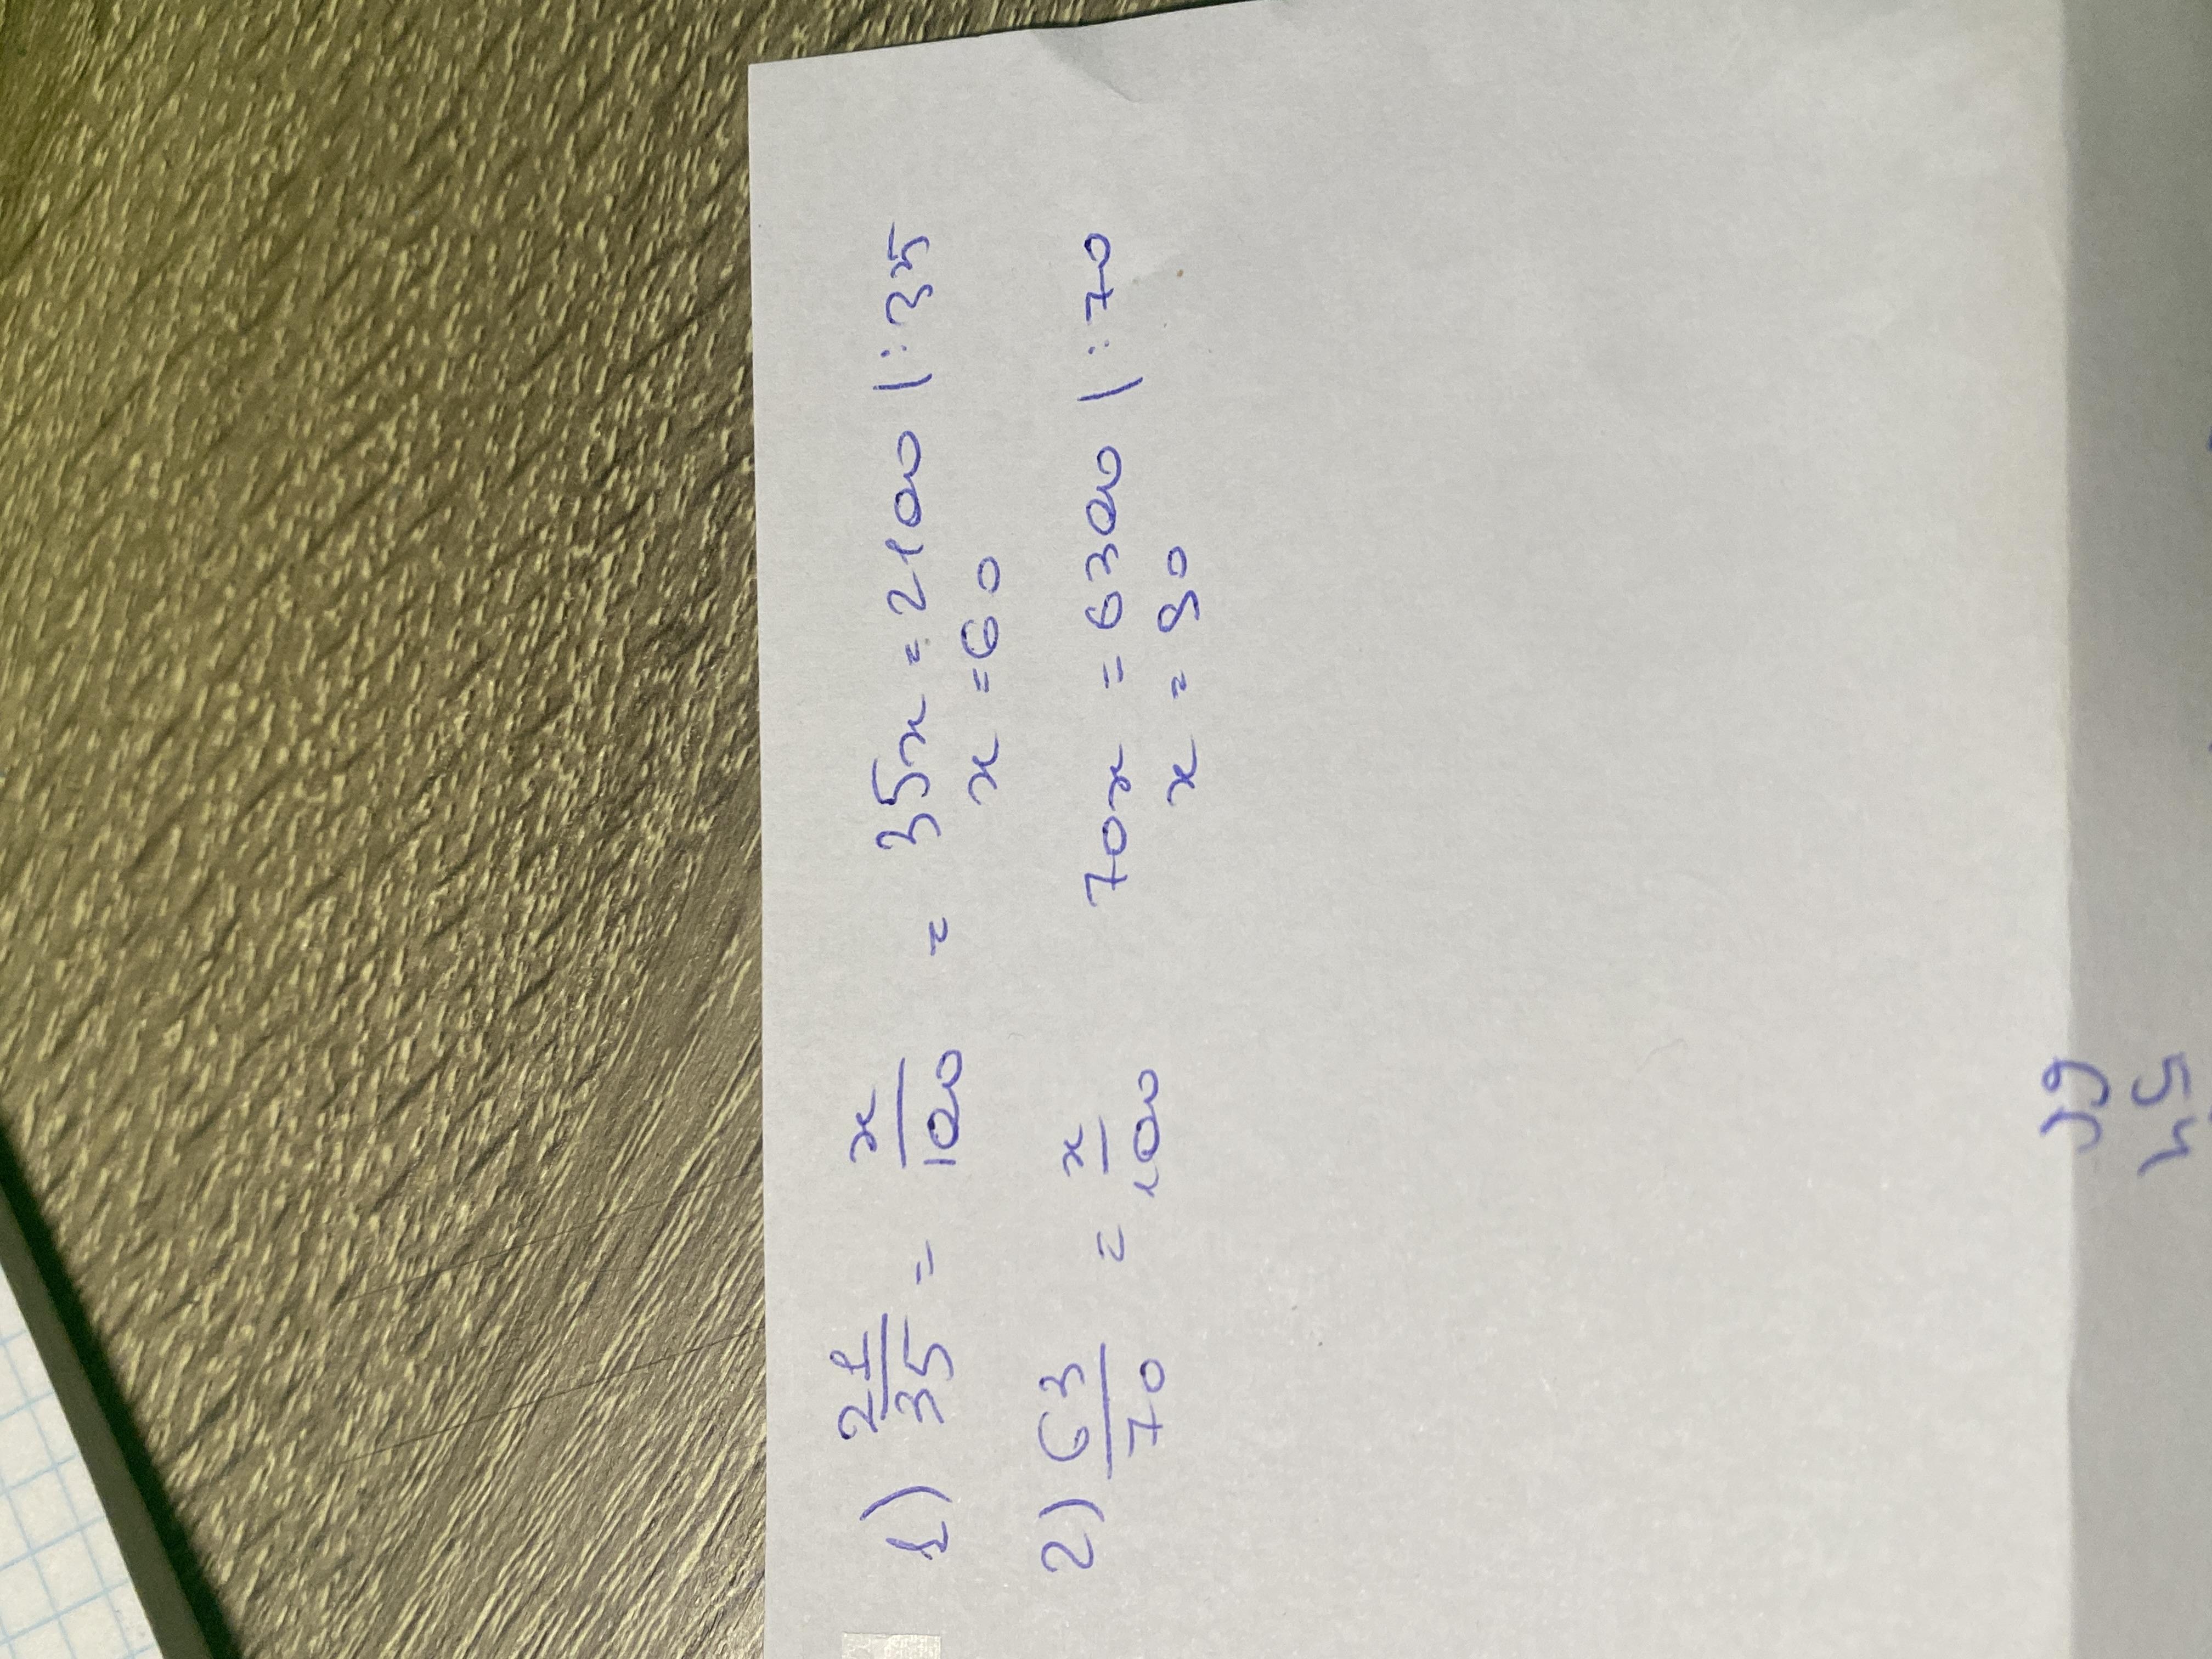 1) 21/35 = x/100 = 35x = 2100 |:35
x = 60
2) 63/70 = x/100 70x = 6300 |:70
x = 90